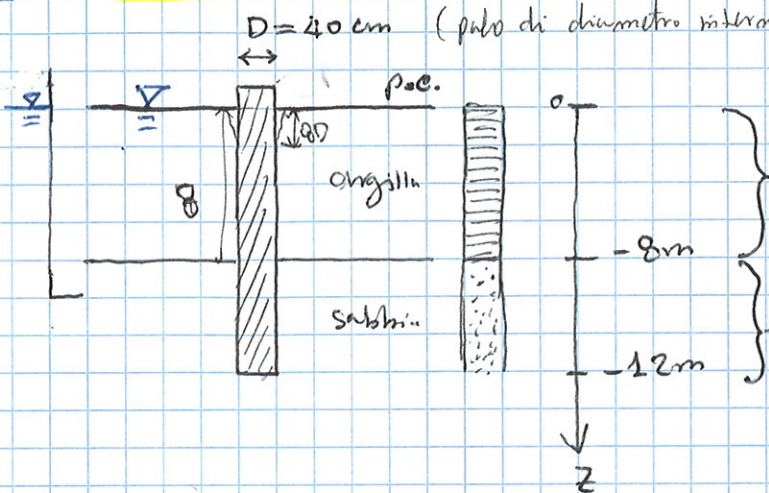 D = 40 cm (palo di diametro
p.c.
0
8D
8
argilla
-8m
sabbia
-12m
z